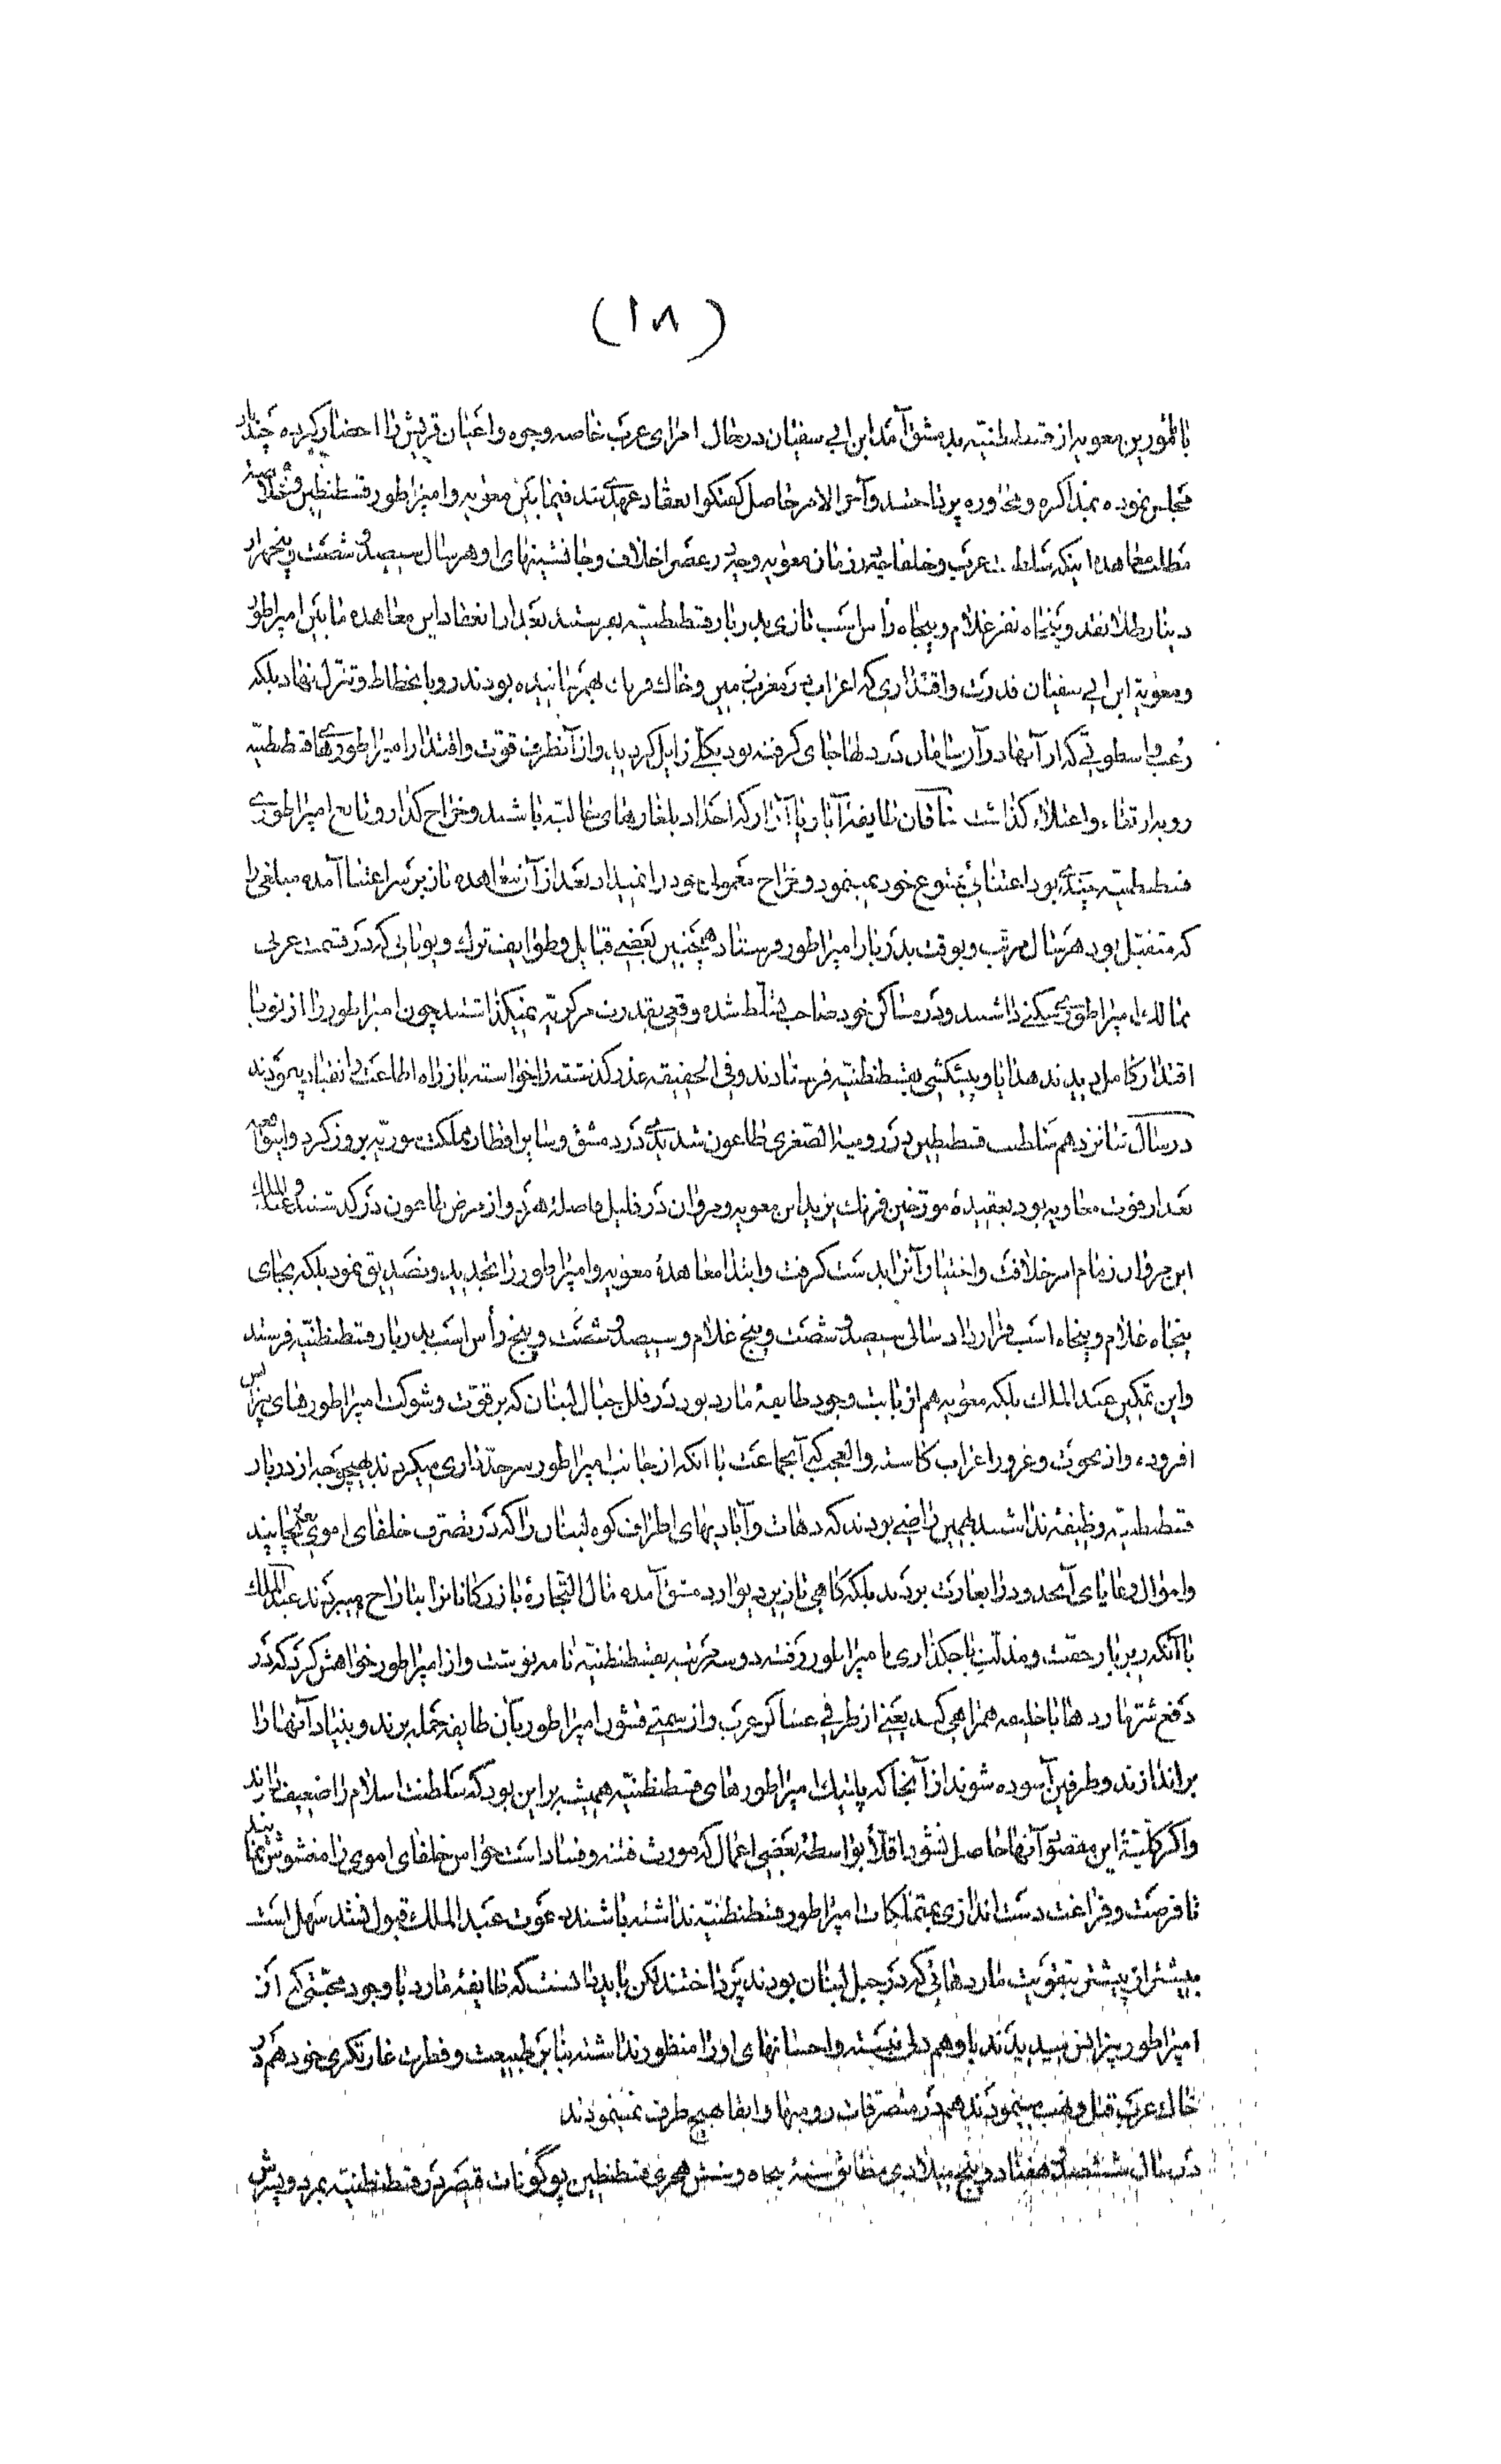 (١٨)
بامٔمورین معویه از قسطنطنیّه بدمشق آمد ابن ابی سفیان در حال امرای عرب خاصه وجوه و اعیان قریش را احضار کرده چندبار
مجلس نموده بمذاکره و محاوره پرداختند و آخر الامر حاصل گفتگو انعقاد عهدی شد فیمابین معویه و امپراطور قسطنطین
مطلب معاهده اینکه سلطنت عرب و خلفا چه در زمان معویه و چه در عصر اخلاف و جانشینهای او هر سال سیصد و شصت و پنجهزار
دینار طلا نقد و پنجاه نفر غلام و پنجاه رأس اسب تازی بدربار قسطنطنیّه بفرستند بعد از انعقاد این معاهده مابین امپراطور
و معویة ابن ابی سفیان قدرت و اقتداری که اعراب در مغرب زمین و خاک فرنک بهمرسانیده بودند رو بانحطاط و تنزل نهاد بلکه
رُعب و سطوتی که از آنها در آن سامان در دلها جای گرفته بود بکلّی زایل گردید و از آنطرف قوّت و اقتدار امپراطوری قسطنطنیّه
رو بارتقاء و اعتلاء گذاشت خاقان طایفه آبار یا آنار که اجداد بلغارهای حالیّه باشند و خراج گذار و تابع امپراطوری
قسطنطنیّه چندی بود اعتنائی بمتبوع خود نمینمود و خراج معمولی خود را نمیداد بعد از آن معاهده باز بر سر اعتنا آمده مبلغی را
که متقبل بود هر سال مرتّب و بوقت بدربار امپراطور فرستاد همچنین بعضی قبایل و طوایف ترک و یونانی که در قسمت غربی
ممالک امپراطوری سکنی داشتند و در مساکن خود صاحب تسلّط شده وقعی بقدرت مرکزیّه نمیگذاشتند چون امپراطور را از نو با
اقتدار کامل دیدند هدایا و پیشکشی بقسطنطنیّه فرستادند و فی الحقیقه عذر گذشته را خواسته باز راه اطاعت و انقیاد پیمودند
در سال شانزدهم سلطنت قسطنطین در رومیة الصّغری طاعون شدیدی در دمشق و سایر اقطار مملکت سوریّه بروز کرد و اینواقعه
بعد از فوت معاویه بود بعقیدهٔ مورّخین فرنک یزید ابن معویه و مروان در قلیل فاصلهٔ هر دو از مرض طاعون درگذشتند و عبدالملک
ابن مروان زمام امر خلافت و اختیار آنرا بدست گرفت و ابتدا معاهدهٔ معویه و امپراطور را تجدید و تصدیق نمود بلکه بجای
پنجاه غلام و پنجاه اسب قرار داد سالی سیصد و شصت و پنج غلام و سیصد و شصت و پنج رأس اسب بدربار قسطنطنیّه فرستد
و این تمکین عبدالملک بلکه معویه هم از بابت وجود طایفهٔ مارد بود در قلل جبال لبنان که بر قوّت و شوکت امپراطورهای بیزانس
افزوده و از نخوت و غرور اعراب کاسته و العجب که آنجماعت با آنکه از جانب امپراطور سرحدّداری میکردند بهیچوجه از دربار
قسطنطنیّه وظیفه نداشتند بهمین راضی بودند که دهات و آبادیهای اطراف کوه لبنان را که در تصرّف خلفای اموی بود بچاپند
و اموال رعایای آنحدود را بغارت برند بلکه گاهی تا زیر دیوار دمشق آمده مال التّجارهٔ بازرگانان را بتاراج میبردند عبدالملک
با آنکه زیر بار خفّت و مذلّت باجگذاری بامپراطور رفته دو سه مرتبه بقسطنطنیّه نامه نوشت و از امپراطور خواهش کرد که در
دفع شرّ ماردها با خلیفه همراهی کند یعنی از طرفی عساکر عرب و از سمتی قشون امپراطور بآن طایفه حمله برند و بنیاد آنها را
براندازند و طرفین آسوده شوند از آنجا که پلتیک امپراطورهای قسطنطنیّه همیشه بر این بود که سلطنت اسلام را ضعیف دارند
و اگر کلیّة این مقصود آنها حاصل نشود اقلّاً بواسطهٔ بعضی اعمال که مورث فتنه و فساد است حواس خلفای اموی را مغشوش نمایند
تا فرصت و فراغت دست اندازی بمتملکات امپراطور قسطنطنیّه نداشته باشند دعوت عبدالملک قبول نشد سهل است
بیشتر از پیشتر بتقویت ماردهائی که در جبل لبنان بودند پرداختند لکن باید دانست که طایفهٔ مارد با وجود محبّتی که از
امپراطور بیزانس میدیدند با او هم دل نبسته و احسانهای او را منظور نداشته بنا بر طبیعت و فطرت غارتگری خود هم در
خاک عرب قتل و نهب مینمودند هم در متصرّفات رومیها و ابقا بهیچ طرف نمینمودند
در سال ششصد و هفتاد و پنج میلادی مطابق سنهٔ پنجاه و شش هجری قسطنطین پوگونات قیصر در قسطنطنیّه بمرد و پسرش